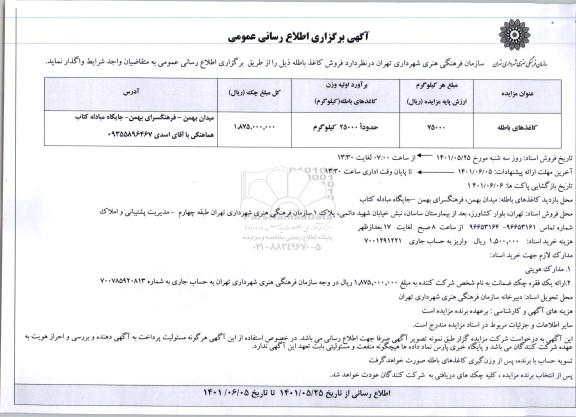 آگهی برگزاری اطلاع رسانی عمومی
سازمان فرهنگی هنری شهرداری تهران
سازمان فرهنگی هنری شهرداری تهران درنظردارد فروش کاغذ باطله ذیل را از طریق برگزاری اطلاع رسانی عمومی به متقاضیان واجد شرایط واگذار نماید.
عنوان مزایده
مبلغ هر کیلوگرم
ارزش پایه مزایده (ریال)
برآورد اولیه وزن
کاغذهای باطله(کیلوگرم)
کل مبلغ چک (ریال)
آدرس
کاغذهای باطله
۷۵۰۰۰
حدوداً ۲۵۰۰۰ کیلوگرم
۱,۸۷۵,۰۰۰,۰۰۰
میدان بهمن – فرهنگسرای بهمن- جایگاه مبادله کتاب
هماهنگی با آقای اسدی ۰۹۳۵۵۸۹۶۴۶۷
تاریخ فروش اسناد: روز سه شنبه مورخ ۱۴۰۱/۰۵/۲۵ از ساعت ۰۷:۰۰ لغایت ۱۳:۳۰
آخرین مهلت ارائه پیشنهادات: ۱۴۰۱/۰۶/۰۵ تا پایان وقت اداری ساعت ۱۳:۳۰
تاریخ بازگشایی پاکت ها: ۱۴۰۱/۰۶/۰۶
محل بازدید کاغذهای باطله: میدان بهمن، فرهنگسرای بهمن –جایگاه مبادله کتاب
محل فروش اسناد: تهران، بلوار کشاورز، بعد از بیمارستان ساسان، نبش خیابان شهید دائمی، پلاک ۱ سازمان فرهنگی هنری شهرداری تهران طبقه چهارم – مدیریت پشتیبانی و املاک
شماره تماس ۹۶۶۵۳۱۶۱- ۹۶۶۵۳۱۶۴ از ساعت ۸ صبح لغایت ۱۷ بعدازظهر
هزینه خرید اسناد: ۱,۵۰۰,۰۰۰ ریال واریز به حساب جاری ۷۰۰۱۲۹۱۲۲۱
مدارک لازم جهت خرید اسناد:
۱. مدارک هویتی
۲.ارائه یک فقره چک ضمانت به نام شخص شرکت کننده به مبلغ ۱,۸۷۵,۰۰۰,۰۰۰ ریال در وجه سازمان فرهنگی هنری شهرداری تهران به حساب جاری به شماره ۷۰۰۷۸۵۹۲۰۸۱۳
محل تحویل اسناد: دبیرخانه سازمان فرهنگی هنری شهرداری تهران
هزینه های آگهی و کارشناسی : برعهده برنده مزایده است
سایر اطلاعات و جزئیات مربوط در اسناد مزایده مندرج است.
این آگهی به درخواست شرکت مزایده گزار طبق نمونه تصویر آگهی صرفا جهت اطلاع رسانی می باشد. در خصوص استفاده از این آگهی هرگونه مسئولیت پرداخت به آگهی دهنده و بررسی و احراز هویت به
عهده شرکت کنندگان می باشد و پایگاه خبری پارس نماد داده ها هیچگونه منفعت و مسئولیتی بابت تعهد این آگهی ندارد.
تسویه حساب با برنده، پس از وزن‌گیری کاغذهای باطله صورت خواهدگرفت
پس از انتخاب برنده مزایده ، کلیه چک های دریافتی به شرکت کنندگان عودت خواهد شد.
اطلاع رسانی از تاریخ ۱۴۰۱/۰۵/۲۵ تا تاریخ ۱۴۰۱/۰۶/۰۵
۰۲۱-۸۸۳۴۹۶۷۰-۵